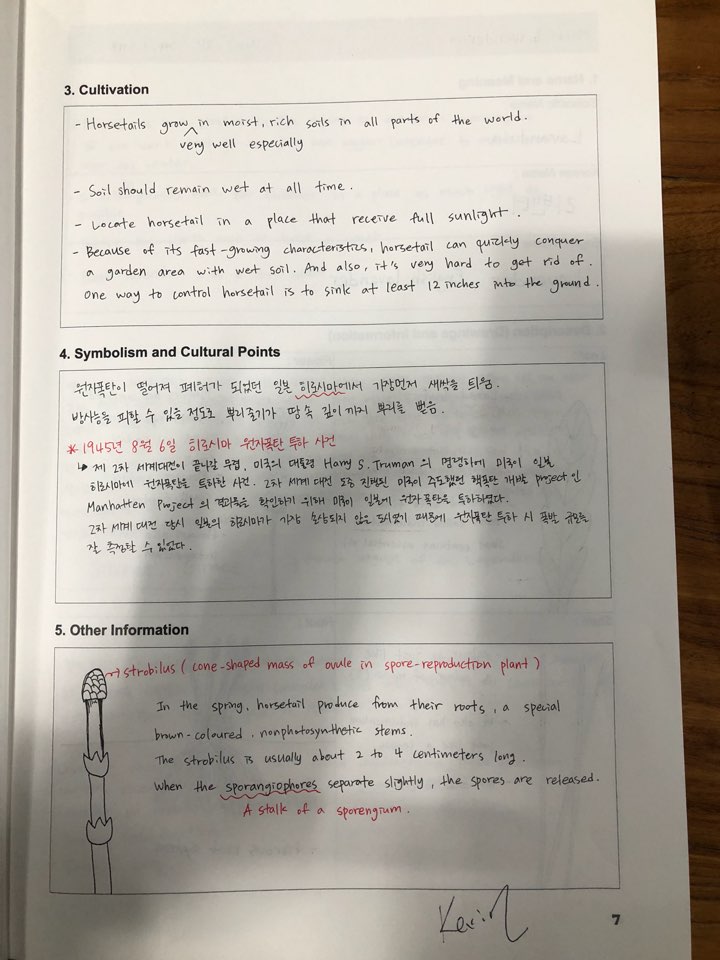 3. Cultivation
- Horsetails grow in moist, rich soils in all parts of the world.
very well especially
- Soil should remain wet at all time.
- Locate horsetail in a place that receive full sunlight.
- Because of its fast-growing characteristics, horsetail can quickly conquer
a garden area with wet soil. And also, it's very hard to get rid of.
One way to control horsetail is to sink at least 12 inches into the ground.
4. Symbolism and Cultural Points
원자폭탄이 떨어져 폐허가 되었던 일본 히로시마에서 가장먼저 새싹을 틔움.
방사능을 피할 수 있을 정도로 뿌리줄기가 땅 속 깊이까지 뿌리를 뻗음.
* 1945년 8월 6일 히로시마 원자폭탄 투하 사건
↳ 제 2차 세계대전이 끝나갈 무렵, 미국의 대통령 Harry S. Truman 의 명령하에 미국이 일본
히로시마에 원자폭탄을 투하한 사건. 2차 세계 대전 도중 진행된 미국이 주도했던 핵폭탄 개발 project 인
Manhatten Project 의 결과물을 확인하기 위해 미국이 일본에 원자폭탄을 투하하였다.
2차 세계 대전 당시 일본의 히로시마가 가장 손상되지 않은 도시였기 때문에 원자폭탄 투하 시 폭발 규모를
잘 측정할 수 있었다.
5. Other Information
→ strobilus ( cone-shaped mass of ovule in spore-reproduction plant )
In the spring, horsetail produce from their roots, a special
brown-coloured, nonphotosynthetic stems.
The strobilus is usually about 2 to 4 centimeters long.
When the sporangiophores separate slightly, the spores are released.
A stalk of a sporengium.
7